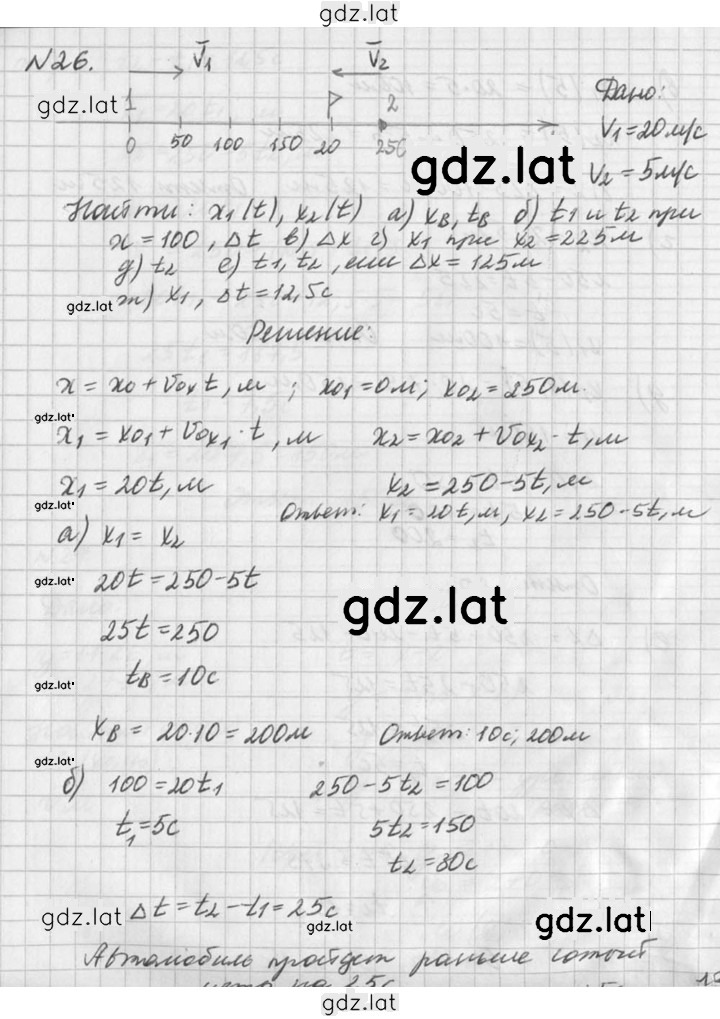 gdz.lat
N26. V̅₁ V̅₂
gdz.lat 1 2 Дано:
0 50 100 150 20 250 V₁=20м/с
gdz.lat V₂=5м/с
Найти: x₁(t), x₂(t) а) xв, tв б) t₁ и t₂ при
x=100, Δt в) Δx г) x₁ при x₂=225м
д) t₂ е) t₁, t₂, если Δx=125м
gdz.lat ж) x₁, Δt=12,5с
Решение:
x=x₀+V₀ₓt, м; x₀₁=0м; x₀₂=250м.
gdz.lat
x₁=x₀₁+V₀ₓ₁·t, м x₂=x₀₂+V₀ₓ₂·t, м
x₁=20t, м x₂=250-5t, м
gdz.lat Ответ: x₁=20t, м, x₂=250-5t, м
а) x₁=x₂
gdz.lat 20t=250-5t gdz.lat
25t=250
gdz.lat tв=10с
xв=20·10=200м Ответ: 10с; 200м
gdz.lat
б) 100=20t₁ 250-5t₂=100
t₁=5с 5t₂=150
t₂=30с
gdz.lat Δt=t₂-t₁=25с gdz.lat gdz.lat
Автомобиль пройдет раньше сотый
на 25с
gdz.lat